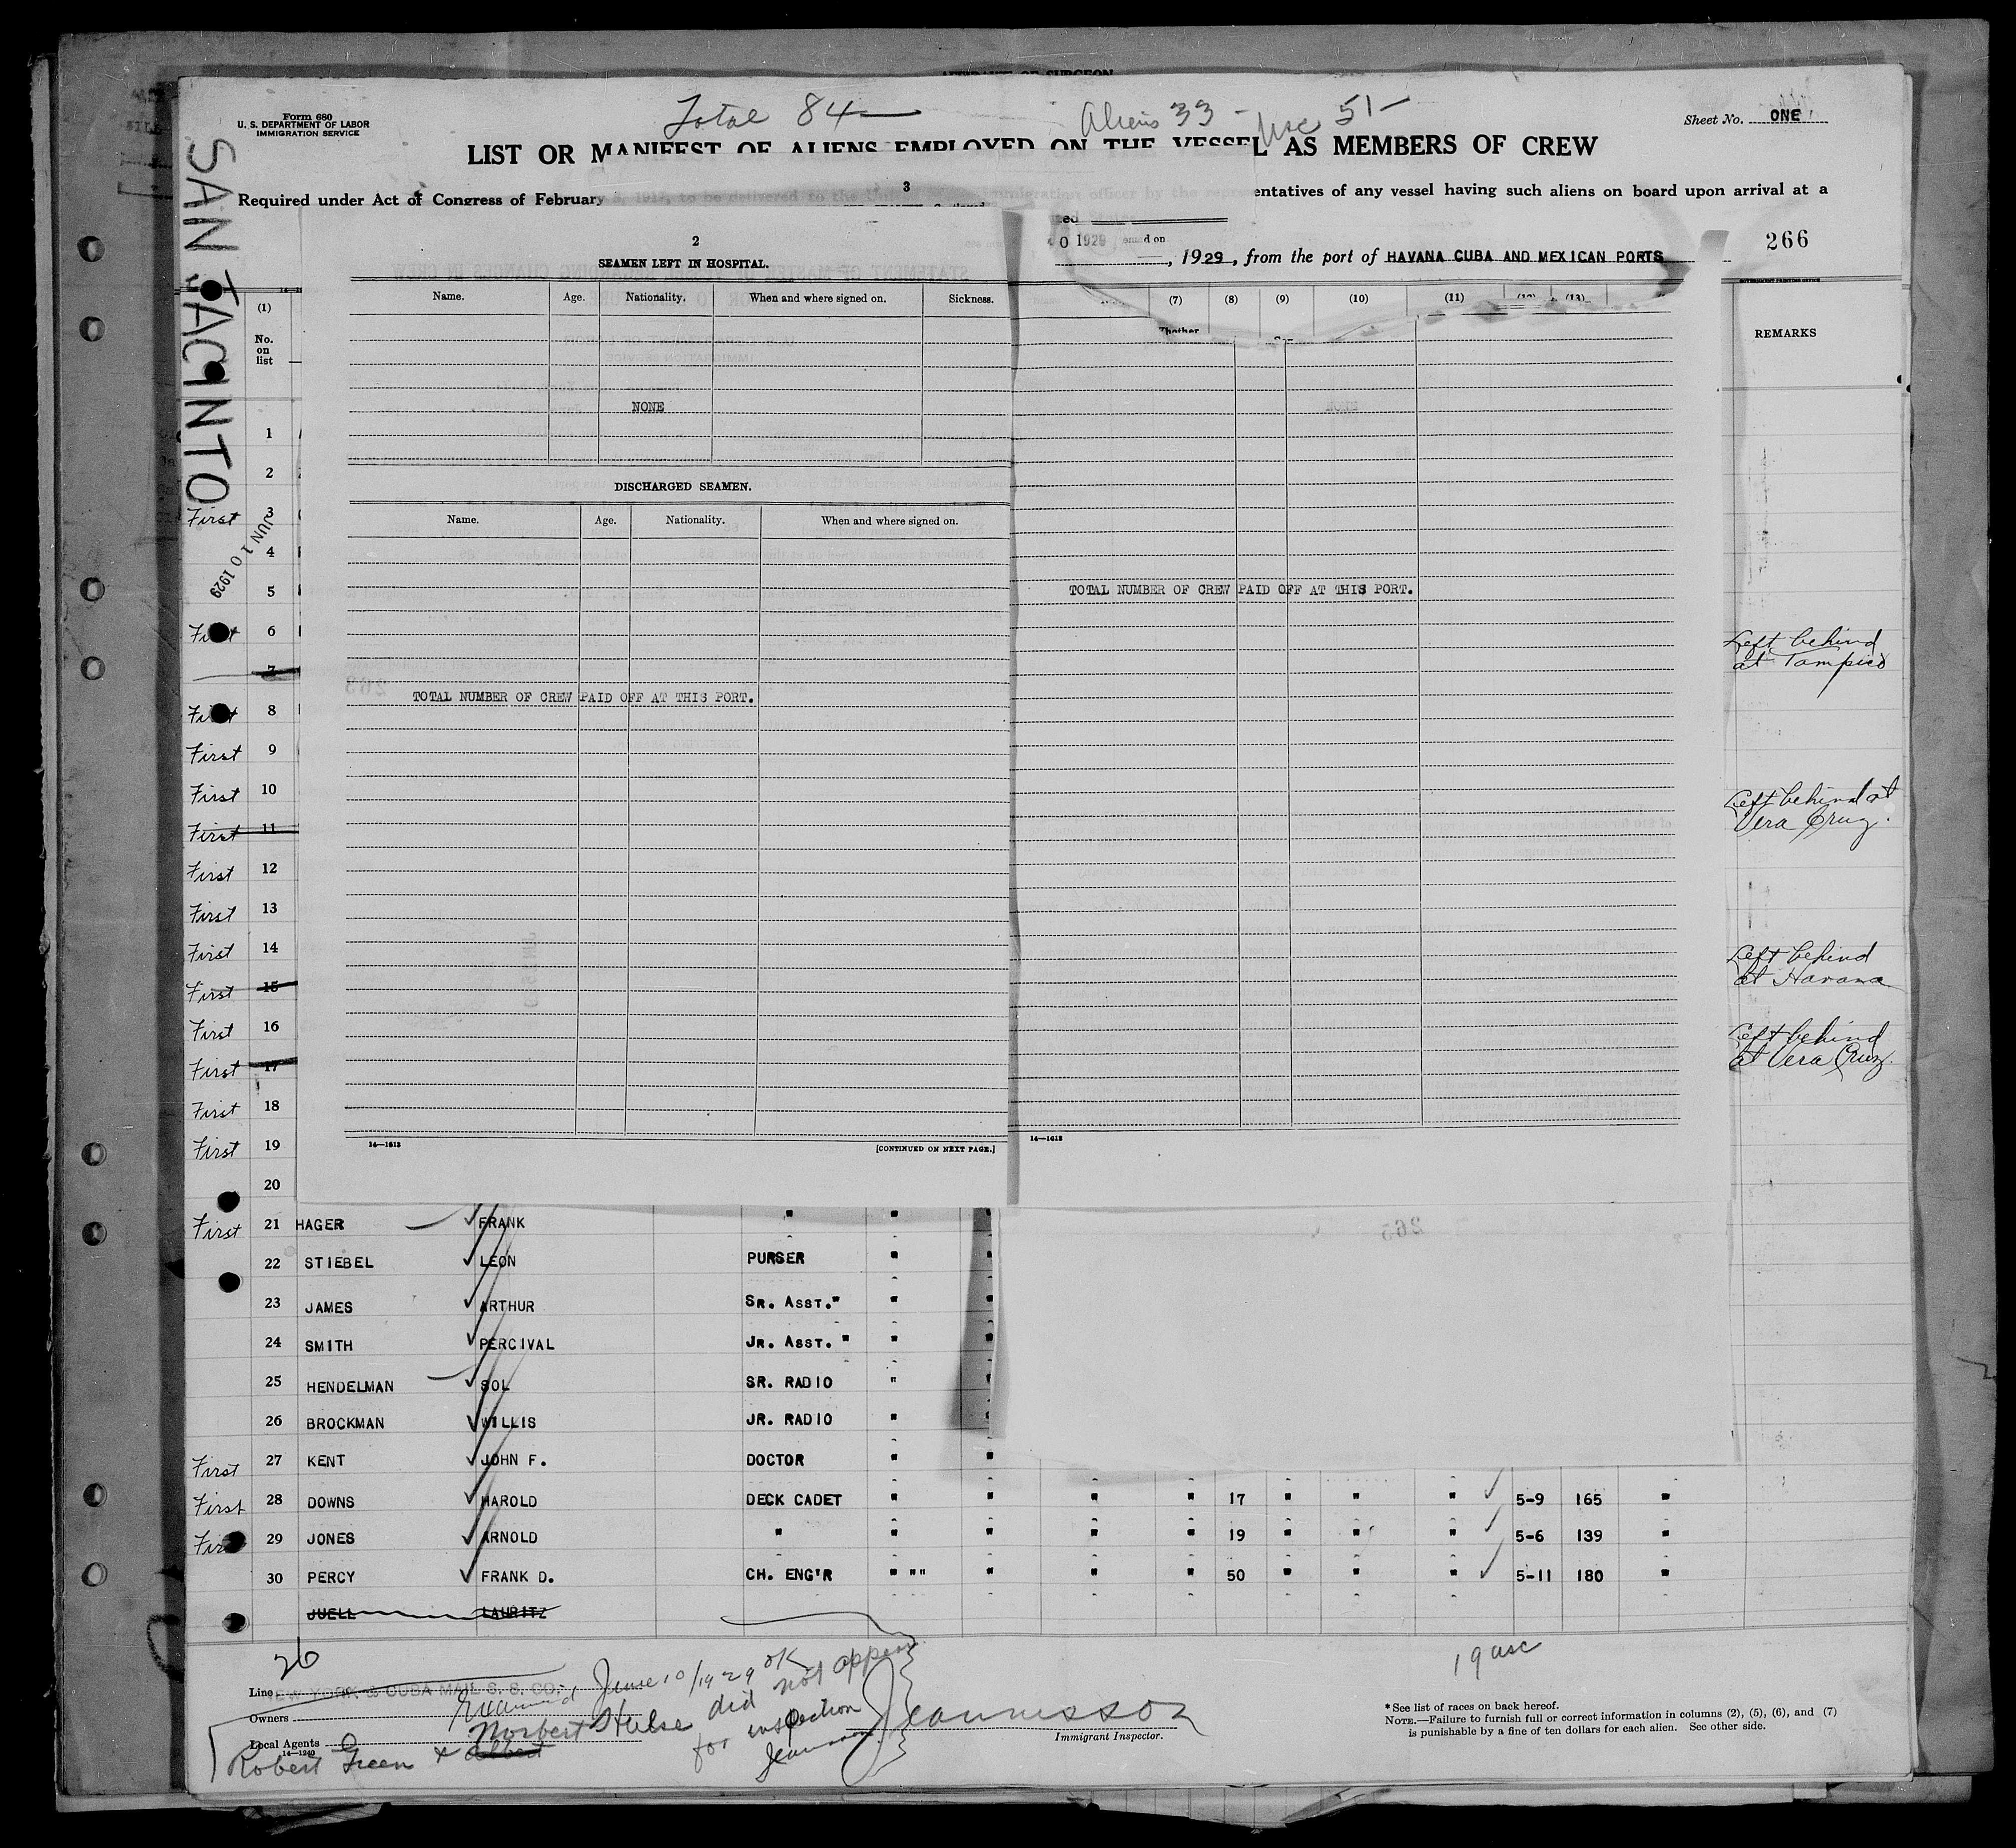 Form 680
U. S. DEPARTMENT OF LABOR
IMMIGRATION SERVICE
Total 84
Aliens 33 - usc 51-
Sheet No. ONE
LIST OR MANIFEST OF ALIENS EMPLOYED ON THE VESSEL AS MEMBERS OF CREW
3
Required under Act of Congress of February 5, 1917, to be delivered to the immigration officer by the entatives of any vessel having such aliens on board upon arrival at a
0 1929
, 1929, from the port of HAVANA CUBA AND MEXICAN PORTS
266
SAN JACINTO
JUN 10 1929
2
SEAMEN LEFT IN HOSPITAL.
Name. Age. Nationality. When and where signed on. Sickness.
NONE
DISCHARGED SEAMEN.
Name. Age. Nationality. When and where signed on.
TOTAL NUMBER OF CREW PAID OFF AT THIS PORT.
14—1613
[CONTINUED ON NEXT PAGE.]
(7) (8) (9) (10) (11) (12) (13)
Whether
TOTAL NUMBER OF CREW PAID OFF AT THIS PORT.
14—1613
REMARKS
Left behind
at Tampico
Left behind at
Vera Cruz.
Left behind
at Havana
Left behind
at Vera Cruz.
(1)
No.
on
list
1
2
First 3
4
5
First 6
7
First 8
First 9
First 10
First 11
First 12
First 13
First 14
First 15
First 16
First 17
First 18
First 19
20
First 21 HAGER FRANK " "
22 STIEBEL LEON PURSER "
23 JAMES ARTHUR SR. ASST." " "
24 SMITH PERCIVAL JR. ASST. " " "
25 HENDELMAN SOL SR. RADIO "
26 BROCKMAN WILLIS JR. RADIO "
First 27 KENT JOHN F. DOCTOR " "
First 28 DOWNS HAROLD DECK CADET " " " " 17 " " " 5-9 165 "
First 29 JONES ARNOLD " " " " " 19 " " " 5-6 139 "
30 PERCY FRANK D. CH. ENG'R " "" " " " 50 " " " 5-11 180 "
JUELL LAURITZ
26
19 usc
Line NEW YORK & CUBA MAIL S. S. CO.
Examined June 10/1929 OK
Owners
Local Agents
14—1240
Robert Green + Albert Norbert Hulse did not appear
for inspection
Jeannisson
Immigrant Inspector.
* See list of races on back hereof.
NOTE.—Failure to furnish full or correct information in columns (2), (5), (6), and (7)
is punishable by a fine of ten dollars for each alien. See other side.